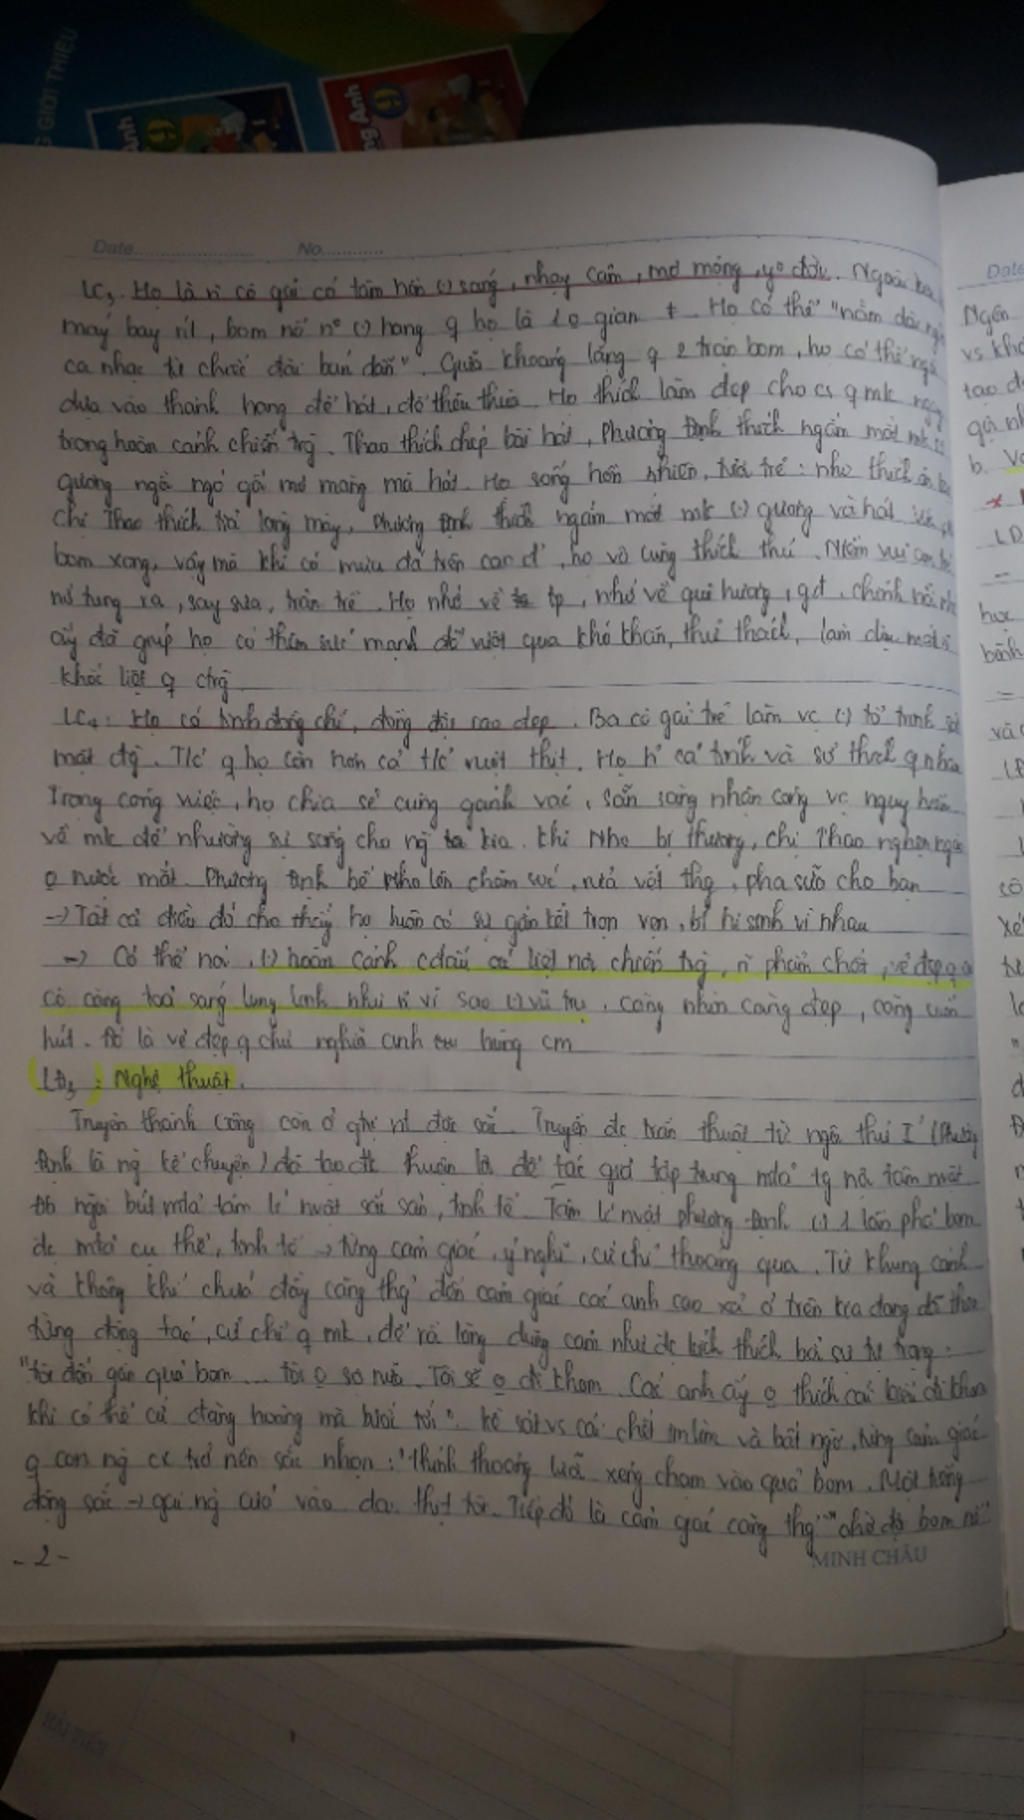 G GIỚI THIỆU
Anh 9
ng Anh 9
Date No
LC3. Họ là n cô gái có tâm hồn (.) sáng, nhạy cảm, mơ mộng, yº đời. Ngoài
máy bay rít, bom nổ nº (.) hang q họ là 1 o gian ≠. Họ có thể "nằm dài
ca nhạc từ chiếc đài bán dẫn". Quá khoảng lặng q 2 trận bom, họ có thể
dựa vào thành hang để hát, để thêu thùa. Họ thích làm đẹp cho cs q mk
trong hoàn cảnh chiến trg. Thao thích chép bài hát, Phương Định thích ngắm mắt mk
gương ngồi ngó gối mơ màng mà hát. Họ sống hồn nhiên, tươi trẻ: nho thích ăn
chị Thao thích tỉa lông mày, Phương Định thích ngắm mắt mk (.) gương và hát.
bom xong, vậy mà khi có mưa đá trên cao đ', họ vô cùng thích thú. Niềm vui con trẻ
nở tung ra, say sưa, tràn trề. Họ nhớ về tp, nhớ về quê hương, gđ. chính
ấy đã giúp họ có thêm sức mạnh để vượt qua khó khăn, thử thách, làm dịu mát
khốc liệt q ctrg
LC4: Họ có tình đồng chí, đồng đội cao đẹp. Ba cô gái trẻ làm vc (.) tổ trinh sát
mặt đg. T/c q họ còn hơn cả t/c ruột thịt. Họ h' cá tính và sở thích q nhau
Trong công việc, họ chia sẻ cùng gánh vác, sẵn sàng nhận công vc nguy hiểm
về mk để nhường sự sống cho ng kia. Khi Nho bị thương, chị Thao nghẹn ngào
o nước mắt. Phương Định bế Nho lên chăm sóc, rửa vết thg, pha sữa cho bạn
→ Tất cả điều đó cho thấy họ luôn có sự gắn kết trọn vẹn, bt hi sinh vì nhau
→ Có thể nói, (.) hoàn cảnh cđấu ác liệt nơi chiến trg, n phẩm chất, vẻ đẹp q
cô càng toả sáng lung linh như n vì sao (.) vũ trụ, càng nhìn càng đẹp, càng cuốn
hút. Đó là vẻ đẹp q chủ nghĩa anh hùng cm
LĐ3: Nghệ thuật.
Truyện thành công còn ở ght nt đặc sắc. Truyện đc trần thuật từ ngôi thứ I (Phương
Định là ng kể chuyện) đã tạo đk thuận lợi để tác giả tập trung mtả tg nội tâm nvật
Đb ngòi bút mtả tâm lí nvật sắc sảo, tinh tế. Tâm lí nvật Phương Định (.) 1 lần phá bom
đc mtả cụ thể, tinh tế → từng cảm giác, ý nghĩ, cử chỉ thoáng qua. Từ khung cảnh
và không khí chứa đầy căng thg đến cảm giác các anh cao xạ ở trên kia đang dõi theo
từng động tác, cử chỉ q mk, để rồi lòng dũng cảm như đc kích thích bởi sự tự trọng:
"tôi đến gần quả bom ... Tôi o sợ nữa. Tôi sẽ o đi khom. Các anh ấy o thích cái kiểu đi khom
khi có thể cứ đàng hoàng mà bước tới". kề sát vs cái chết im lìm và bất ngờ, từng cảm giác
q con ng cx trở nên sắc nhọn: "thỉnh thoảng lưỡi xẻng chạm vào quả bom. Một tiếng
động sắc → gai ng cứa vào da thịt tôi. Tiếp đó là cảm giác căng thg "chờ đợi bom nổ"
- 2 -
MINH CHÂU
Date
Ngôn
vs kh
tạo đ
b.
LĐ
học